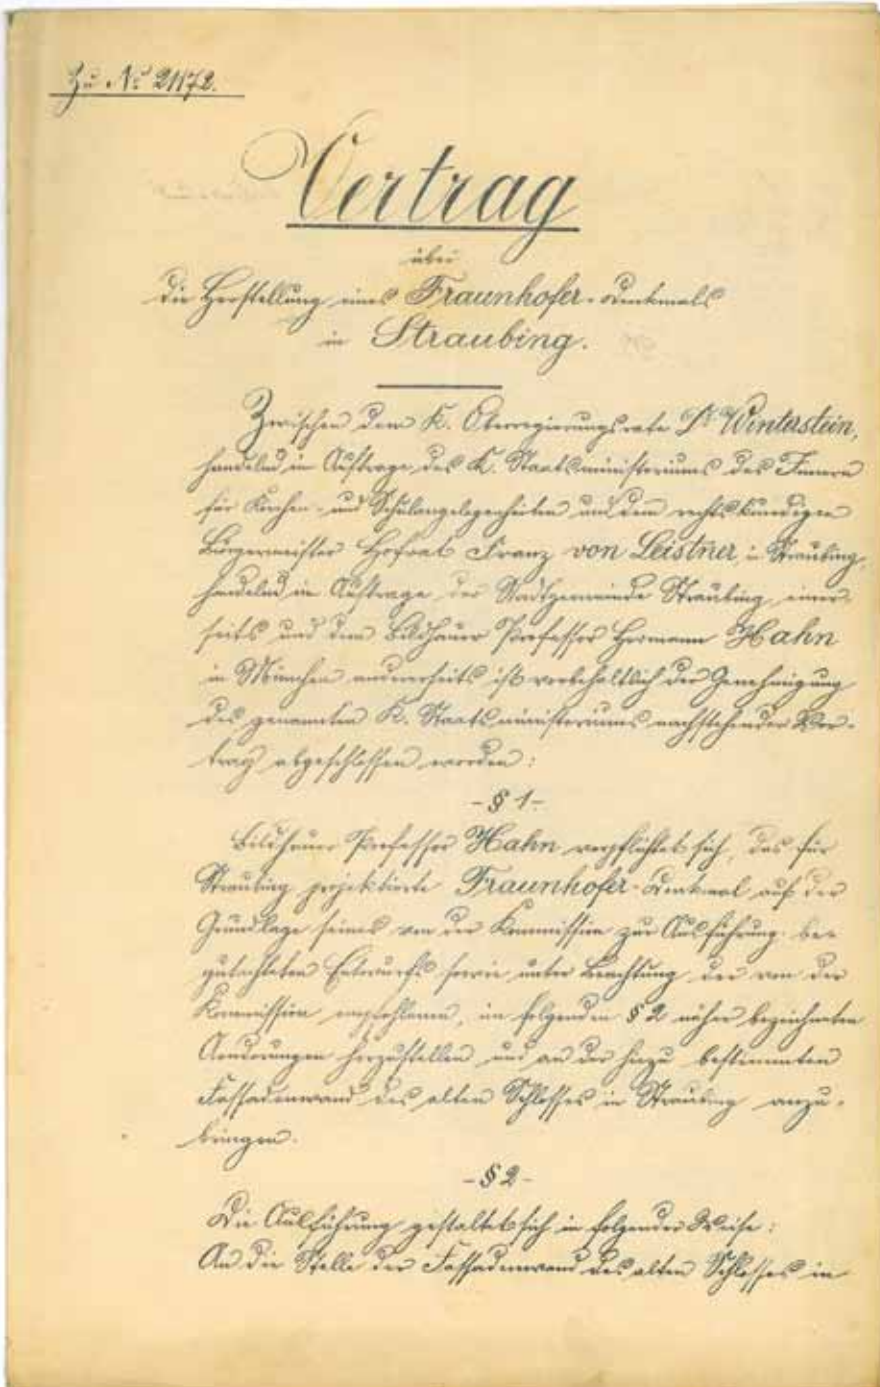 Zu No 21172.
Vertrag
über
die Herstellung eines Fraunhofer-Denkmals
in Straubing.
Zwischen dem K. Oberregierungsrate Dr Winterstein,
handelnd im Auftrage des K. Staatsministeriums des Innern
für Kirchen- und Schulangelegenheiten und dem rechtskundigen
Bürgermeister Hofrat Franz von Leistner in Straubing,
handelnd im Auftrage der Stadtgemeinde Straubing einer-
seits und dem Bildhauer Professor Hermann Hahn
in München andererseits ist vorbehaltlich der Genehmigung
des genannten K. Staatsministeriums nachstehender Ver-
trag abgeschlossen worden:
- § 1 -
Bildhauer Professor Hahn verpflichtet sich, das für
Straubing projektierte Fraunhofer-Denkmal auf der
Grundlage seines von der Kommission zur Ausführung be-
gutachteten Entwurfs sowie unter Beachtung der von der
Kommission empfohlenen, im folgenden § 2 näher bezeichneten
Aenderungen herzustellen und an der hiezu bestimmten
Fassadenwand des alten Schlosses in Straubing anzu-
bringen.
- § 2 -
Die Ausführung gestaltet sich in folgender Weise:
An die Stelle der Fassadenwand des alten Schlosses in